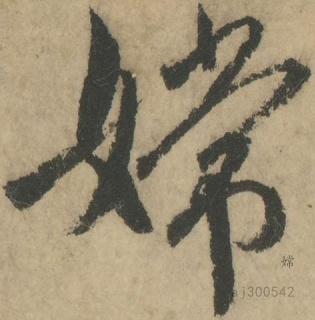 嫦
嫦
aj300542